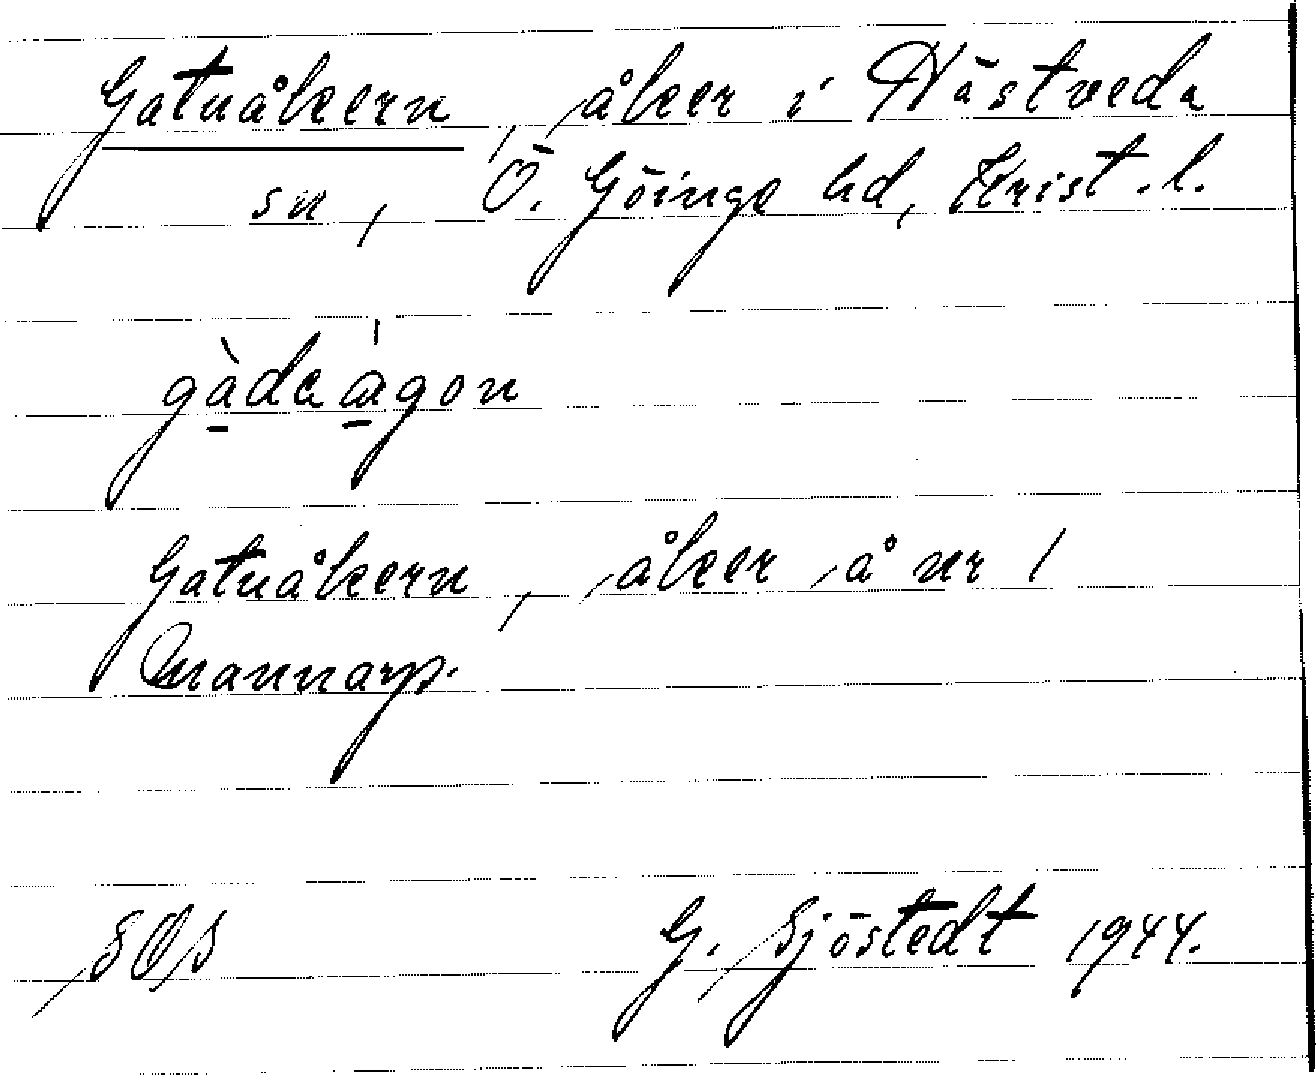 Gatuåkern, åker i Hästveda
sn, Ö. Göinge hd, Krist. l.
gàdaágon
Gatuåkern, åker å nr 1
Mannarp.
SOS
G. Sjöstedt 1944.